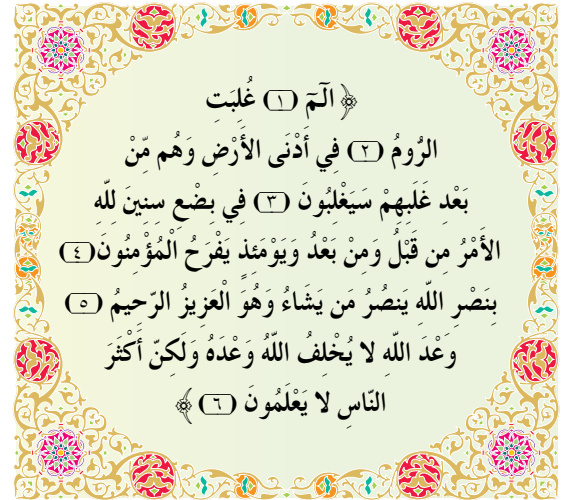 ﴿ الٓمٓ (١) غُلِبَتِ
الرُّومُ (٢) فِي أَدْنَى الأَرْضِ وَهُم مِّنْ
بَعْدِ غَلَبِهِمْ سَيَغْلِبُونَ (٣) فِي بِضْعِ سِنِينَ لِلَّهِ
الأَمْرُ مِن قَبْلُ وَمِنْ بَعْدُ وَيَوْمَئِذٍ يَفْرَحُ الْمُؤْمِنُونَ (٤)
بِنَصْرِ اللَّهِ يَنصُرُ مَن يَشَاءُ وَهُوَ الْعَزِيزُ الرَّحِيمُ (٥)
وَعْدَ اللَّهِ لا يُخْلِفُ اللَّهُ وَعْدَهُ وَلَكِنَّ أَكْثَرَ
النَّاسِ لا يَعْلَمُونَ (٦) ﴾